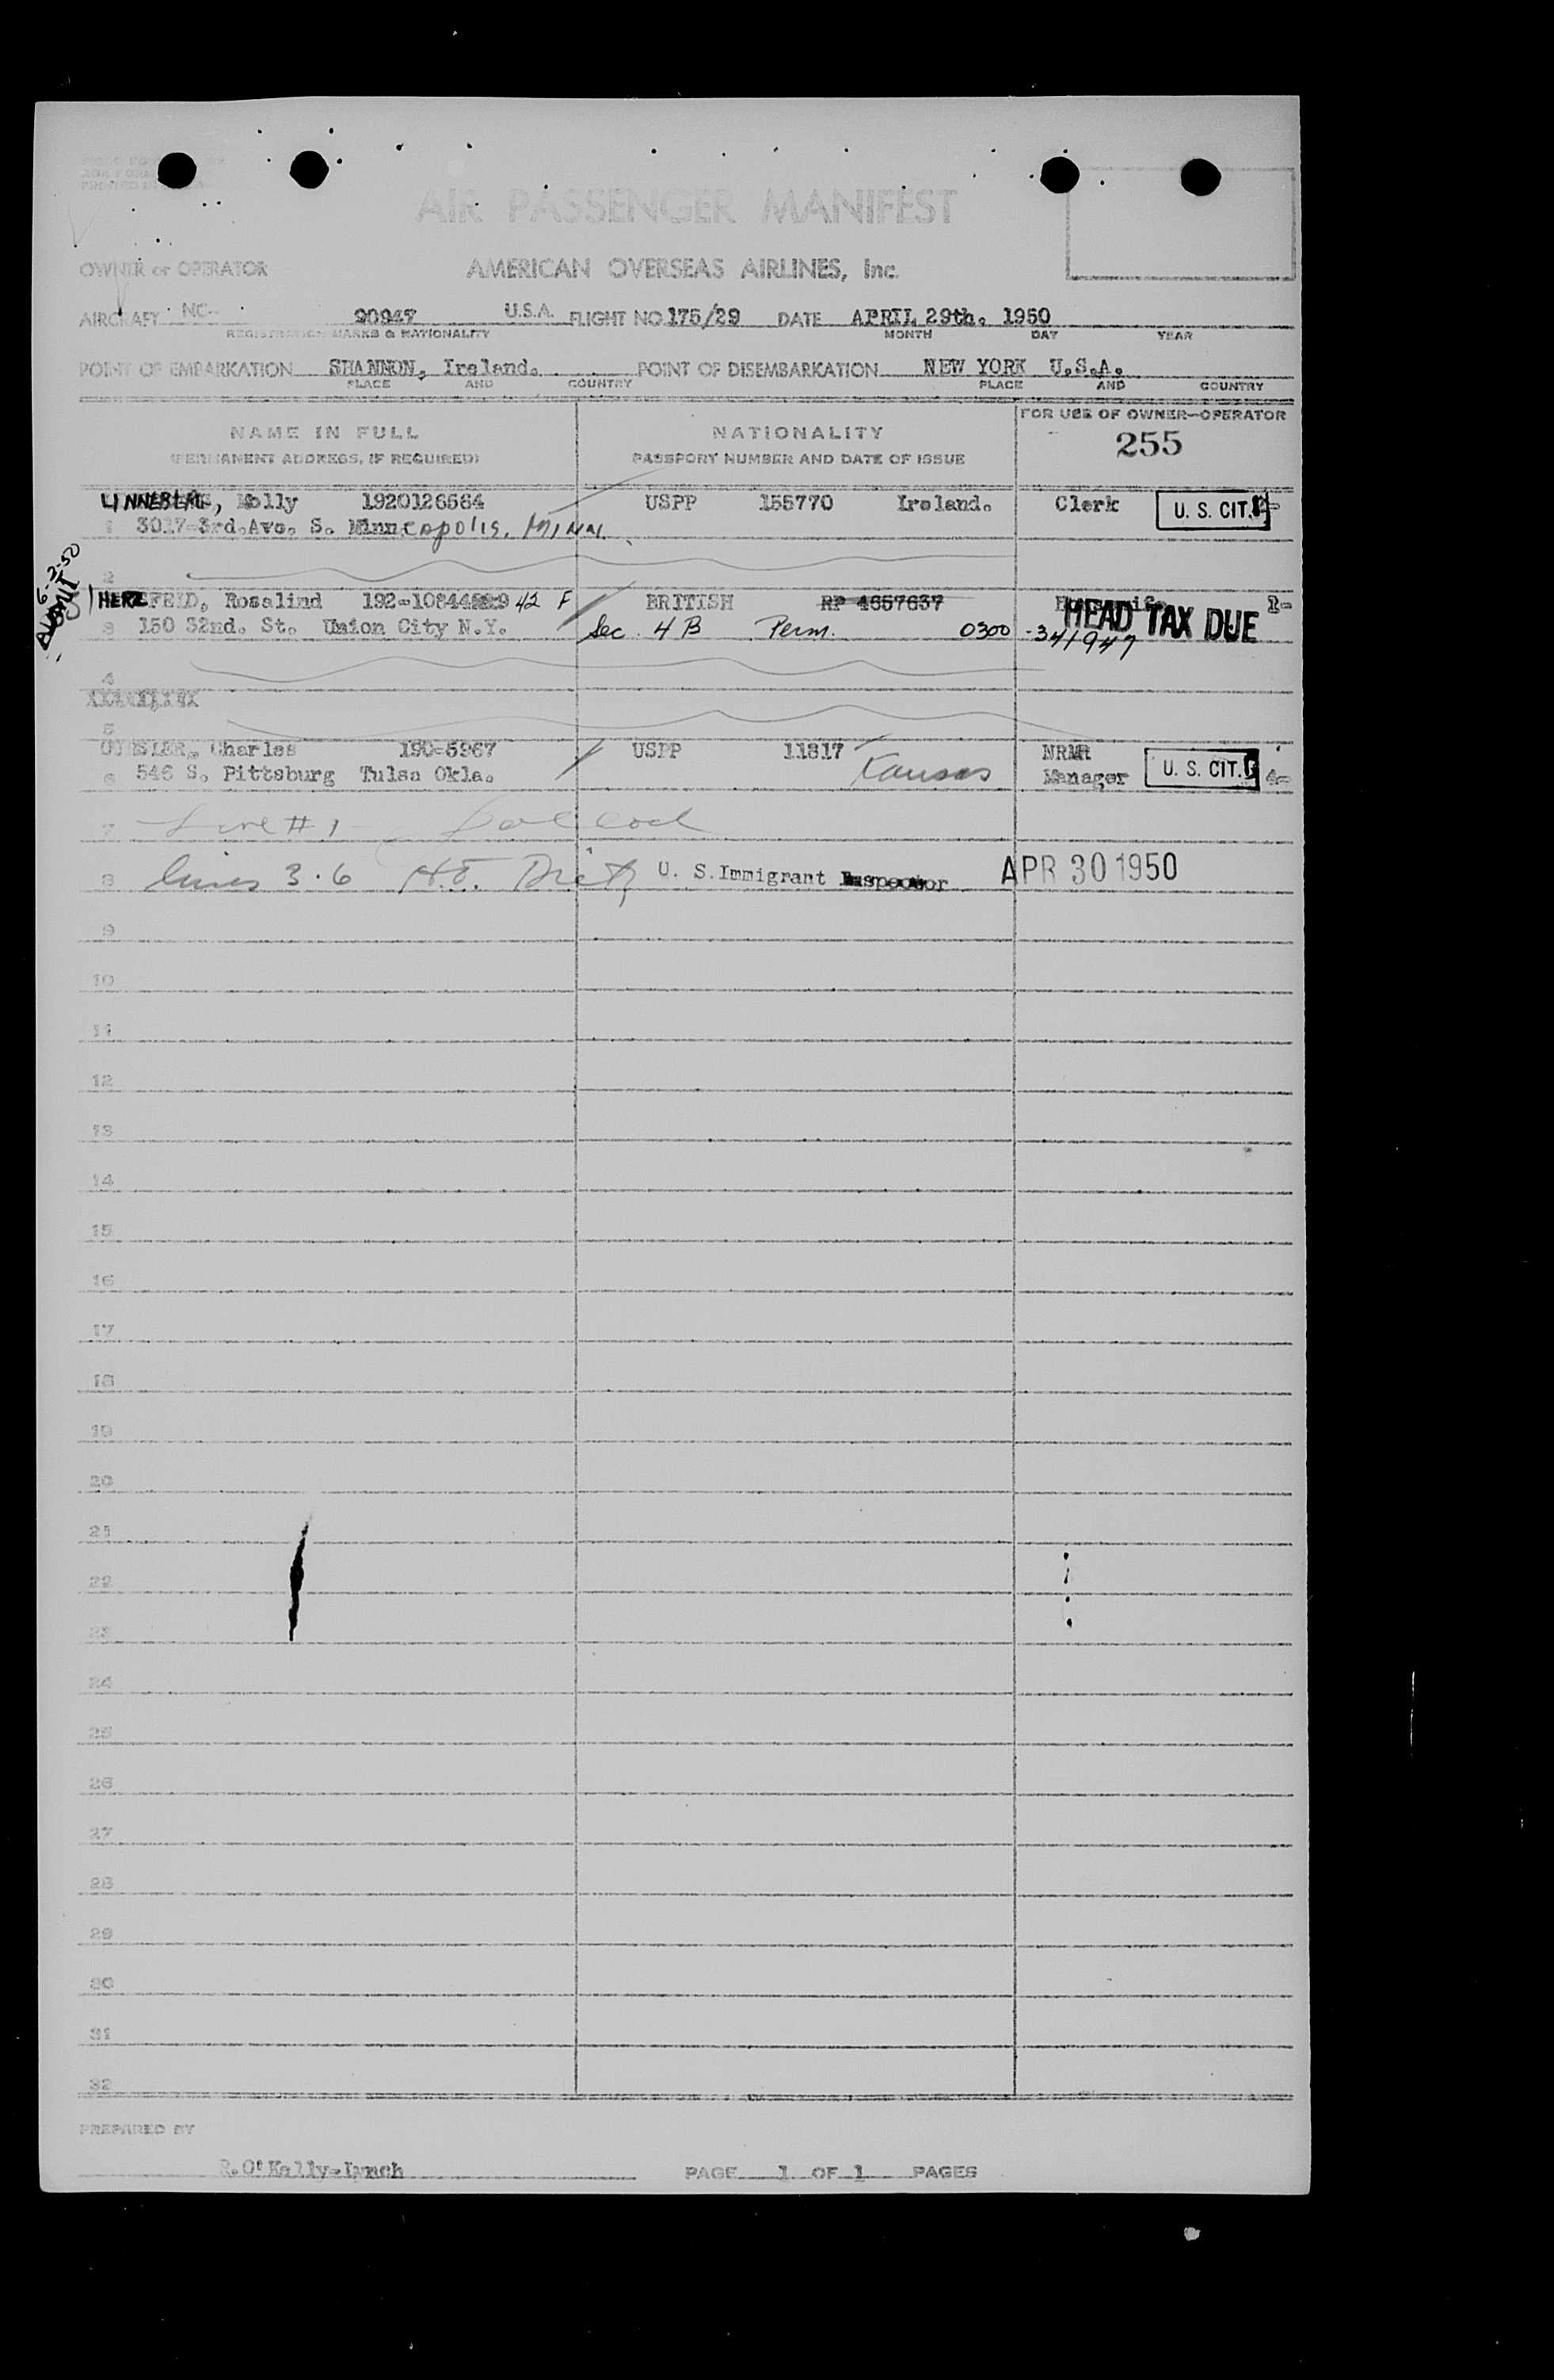 AIR PASSENGER MANIFEST
OWNER or OPERATOR AMERICAN OVERSEAS AIRLINES, Inc.
AIRCRAFT NC- 90947 U.S.A. FLIGHT NO. 175/29 DATE APRIL 29th. 1950
REGISTRATION MARKS & NATIONALITY MONTH DAY YEAR
POINT OF EMBARKATION SHANNON, Ireland. POINT OF DISEMBARKATION NEW YORK U.S.A.
PLACE AND COUNTRY PLACE AND COUNTRY
FOR USE OF OWNER-OPERATOR
NAME IN FULL NATIONALITY 255
(PERMANENT ADDRESS, IF REQUIRED) PASSPORT NUMBER AND DATE OF ISSUE
Molly 1920126564 USPP 155770 Ireland. Clerk U. S. CIT.
1 3017-3rd.Ave. S. Minneapolis, MINN.
2
6-2-50
HERZFELD, Rosalind 192-1084 42 F BRITISH RP 4657637 1-
HEAD TAX DUE
3 150 32nd. St. Union City N.Y. Sec. 4B Perm. 0300 -341947
4
5
Charles 190-5967 USPP 11817 NRMR
6 546 S. Pittsburg Tulsa Okla. Kansas Manager U. S. CIT. 4-
7 Line # 1
8 lines 3·6 H.E. U. S. Immigrant Inspector APR 30 1950
9
10
11
12
13
14
15
16
17
18
19
20
21
22
23
24
25
26
27
28
29
30
31
32
PREPARED BY
R.O'Kelly-Lynch PAGE 1 OF 1 PAGES